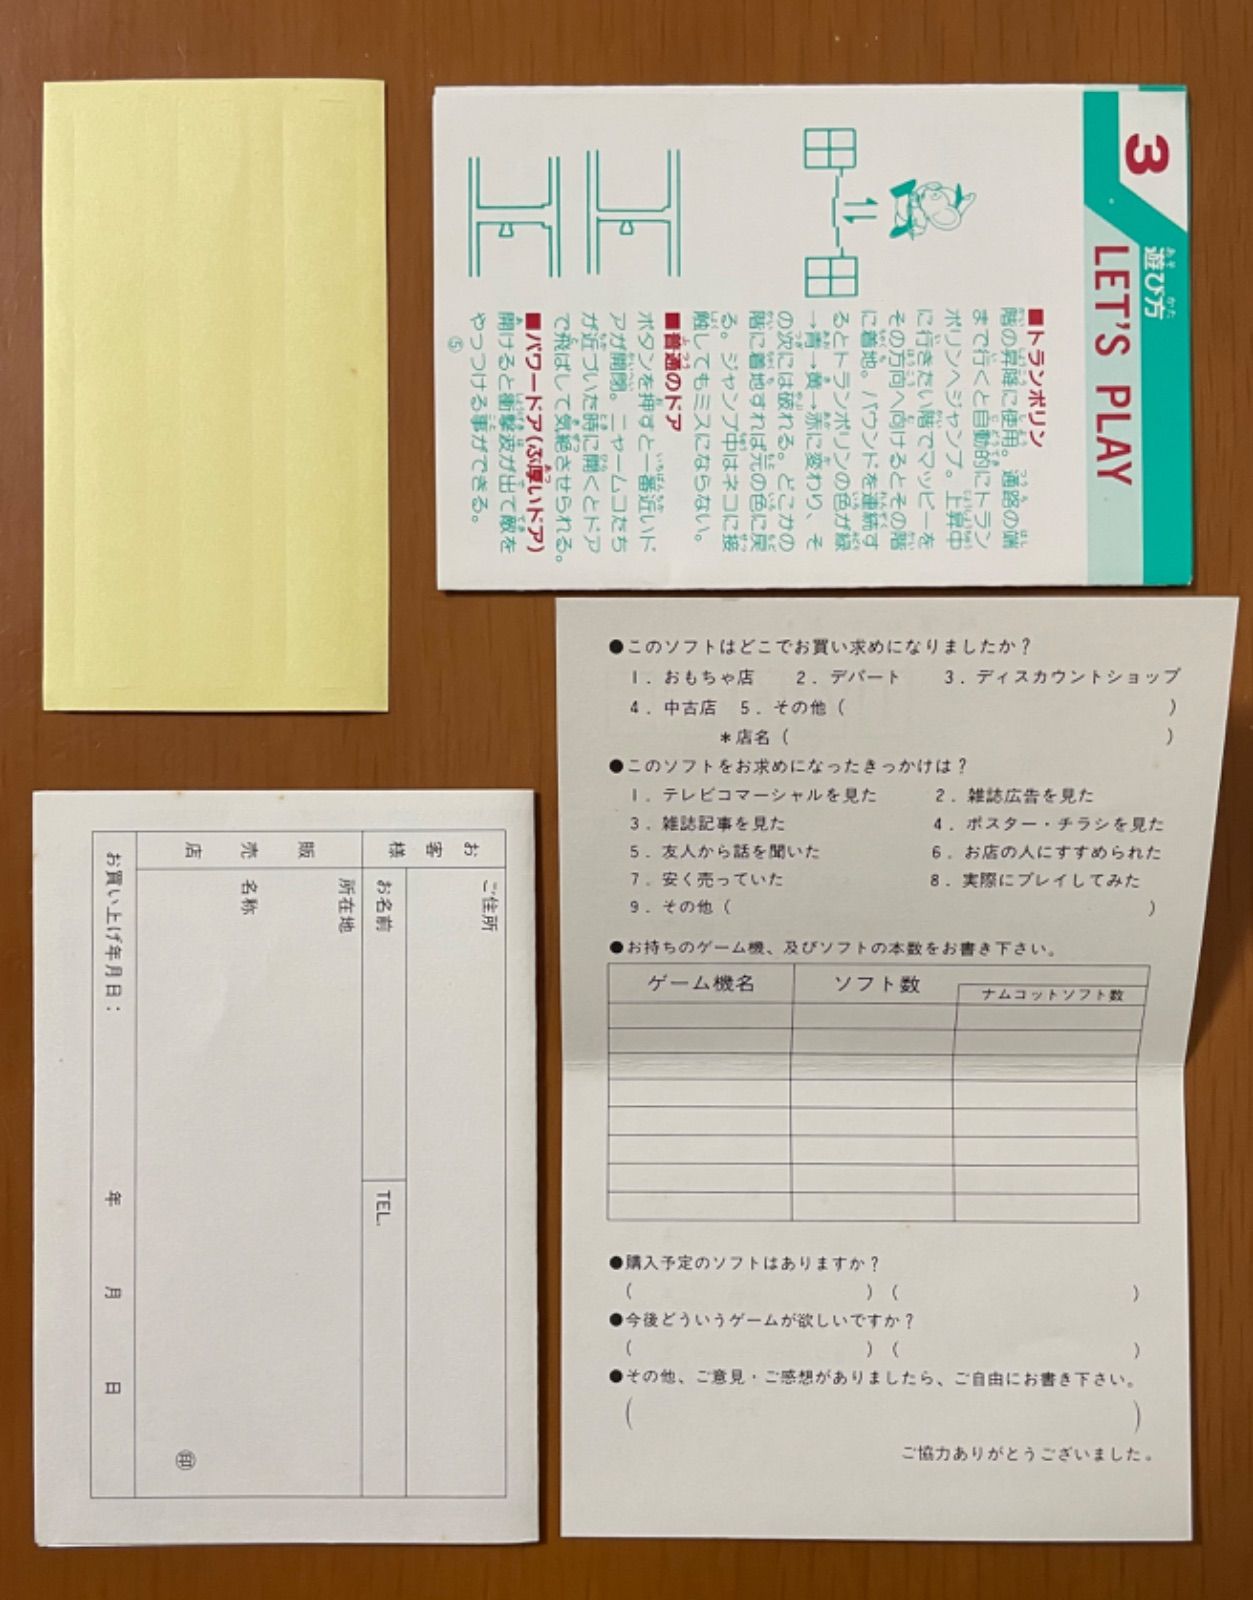 3
遊び方
LET'S PLAY
■トランポリン
階の昇降に使用。通路の端
まで行くと自動的にトラン
ポリンへジャンプ。上昇中
に行きたい階でマッピーを
その方向へ向けるとその階
に着地。バウンドを連続す
るとトランポリンの色が緑
→青→黄→赤に変わり、そ
の次には破れる。どこかの
階に着地すれば元の色に戻
る。ジャンプ中はネコに接
触してもミスにならない。
■普通のドア
ボタンを押すと一番近いド
アが開閉。ニャームコたち
が近づいた時に開くとドア
で飛ばして気絶させられる。
■パワードア(ぶ厚いドア)
開けると衝撃波が出て敵を
やっつける事ができる。
⑤
●このソフトはどこでお買い求めになりましたか？
1．おもちゃ店　2．デパート　3．ディスカウントショップ
4．中古店　5．その他（　）
＊店名（　）
●このソフトをお求めになったきっかけは？
1．テレビコマーシャルを見た　2．雑誌広告を見た
3．雑誌記事を見た　4．ポスター・チラシを見た
5．友人から話を聞いた　6．お店の人にすすめられた
7．安く売っていた　8．実際にプレイしてみた
9．その他（　）
●お持ちのゲーム機、及びソフトの本数をお書き下さい。
ゲーム機名　ソフト数　ナムコットソフト数
●購入予定のソフトはありますか？
（　）（　）
●今後どういうゲームが欲しいですか？
（　）（　）
●その他、ご意見・ご感想がありましたら、ご自由にお書き下さい。
（　）
ご協力ありがとうございました。
お客様
ご住所
お名前
TEL.
販売店
所在地
名称
印
お買い上げ年月日：　年　月　日